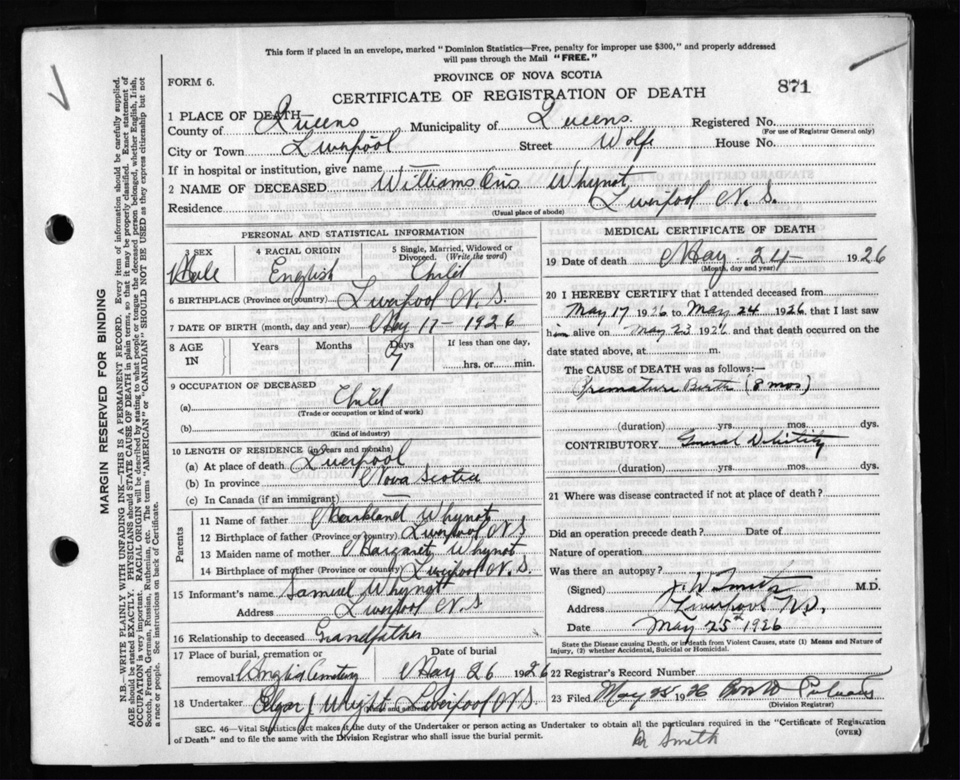 This form if placed in an envelope, marked "Dominion Statistics—Free, penalty for improper use $300," and properly addressed
will pass through the Mail "FREE."
PROVINCE OF NOVA SCOTIA
FORM 6.
CERTIFICATE OF REGISTRATION OF DEATH
871
1 PLACE OF DEATH
County of Queens Municipality of Queens Registered No.
(For use of Registrar General only)
City or Town Liverpool Street Wolfe House No.
If in hospital or institution, give name
2 NAME OF DECEASED Williams Whynot
Residence Liverpool N.S.
(Usual place of abode)
PERSONAL AND STATISTICAL INFORMATION
3 SEX 4 RACIAL ORIGIN 5 Single, Married, Widowed or Divorced. (Write the word)
Male English Child
6 BIRTHPLACE (Province or country) Liverpool N.S.
7 DATE OF BIRTH (month, day and year) May 17 - 1926
8 AGE IN Years Months Days If less than one day,
7 hrs. or min.
9 OCCUPATION OF DECEASED
(a) Child
(Trade or occupation or kind of work)
(b)
(Kind of industry)
10 LENGTH OF RESIDENCE (in years and months)
(a) At place of death Liverpool
(b) In province Nova Scotia
(c) In Canada (if an immigrant) —
Parents
11 Name of father Markland Whynot
12 Birthplace of father (Province or country) Liverpool N S
13 Maiden name of mother Margaret Whynot
14 Birthplace of mother (Province or country) Liverpool N.S.
15 Informant's name Samuel Whynot
Address Liverpool N.S
16 Relationship to deceased Grandfather
17 Place of burial, cremation or removal Date of burial
Cemetery May 26 1926
18 Undertaker Edgar J Wright Liverpool N.S.
MEDICAL CERTIFICATE OF DEATH
19 Date of death May 24 1926
(Month, day and year)
20 I HEREBY CERTIFY that I attended deceased from
May 17 1926 to May 24 1926 that I last saw
him alive on May 23 1926 and that death occurred on
date stated above, at m.
The CAUSE of DEATH was as follows:—
Premature Birth (8 mos)
(duration) yrs. mos. dys.
CONTRIBUTORY General Debility
(duration) yrs. mos. dys.
21 Where was disease contracted if not at place of death?
Did an operation precede death? Date of
Nature of operation
Was there an autopsy?
(Signed) Smith M.D.
Address Liverpool N.S.
Date May 25 1926
State the Disease causing Death, or in death from Violent Causes, state (1) Means and Nature of
Injury, (2) whether Accidental, Suicidal or Homicidal.
22 Registrar's Record Number
23 Filed May 1926
(Division Registrar)
SEC. 46—Vital Statistics Act makes it the duty of the Undertaker or person acting as Undertaker to obtain all the particulars required in the "Certificate of Registration
of Death" and to file the same with the Division Registrar who shall issue the burial permit.
(OVER)
Dr Smith
MARGIN RESERVED FOR BINDING
N.B.—WRITE PLAINLY WITH UNFADING INK—THIS IS A PERMANENT RECORD. Every item of information should be carefully supplied.
AGE should be stated EXACTLY. PHYSICIANS should STATE CAUSE OF DEATH in plain terms, so that it may be properly classified. Exact statement of
OCCUPATION is very important. RACIAL ORIGIN will be described by stating to what people or tongue the deceased person belonged, whether English, Irish,
Scotch, French, German, Russian, Ruthenian, etc. The terms "AMERICAN" or "CANADIAN" SHOULD NOT BE USED as they express citizenship but not
a race or people. See instructions on back of Certificate.